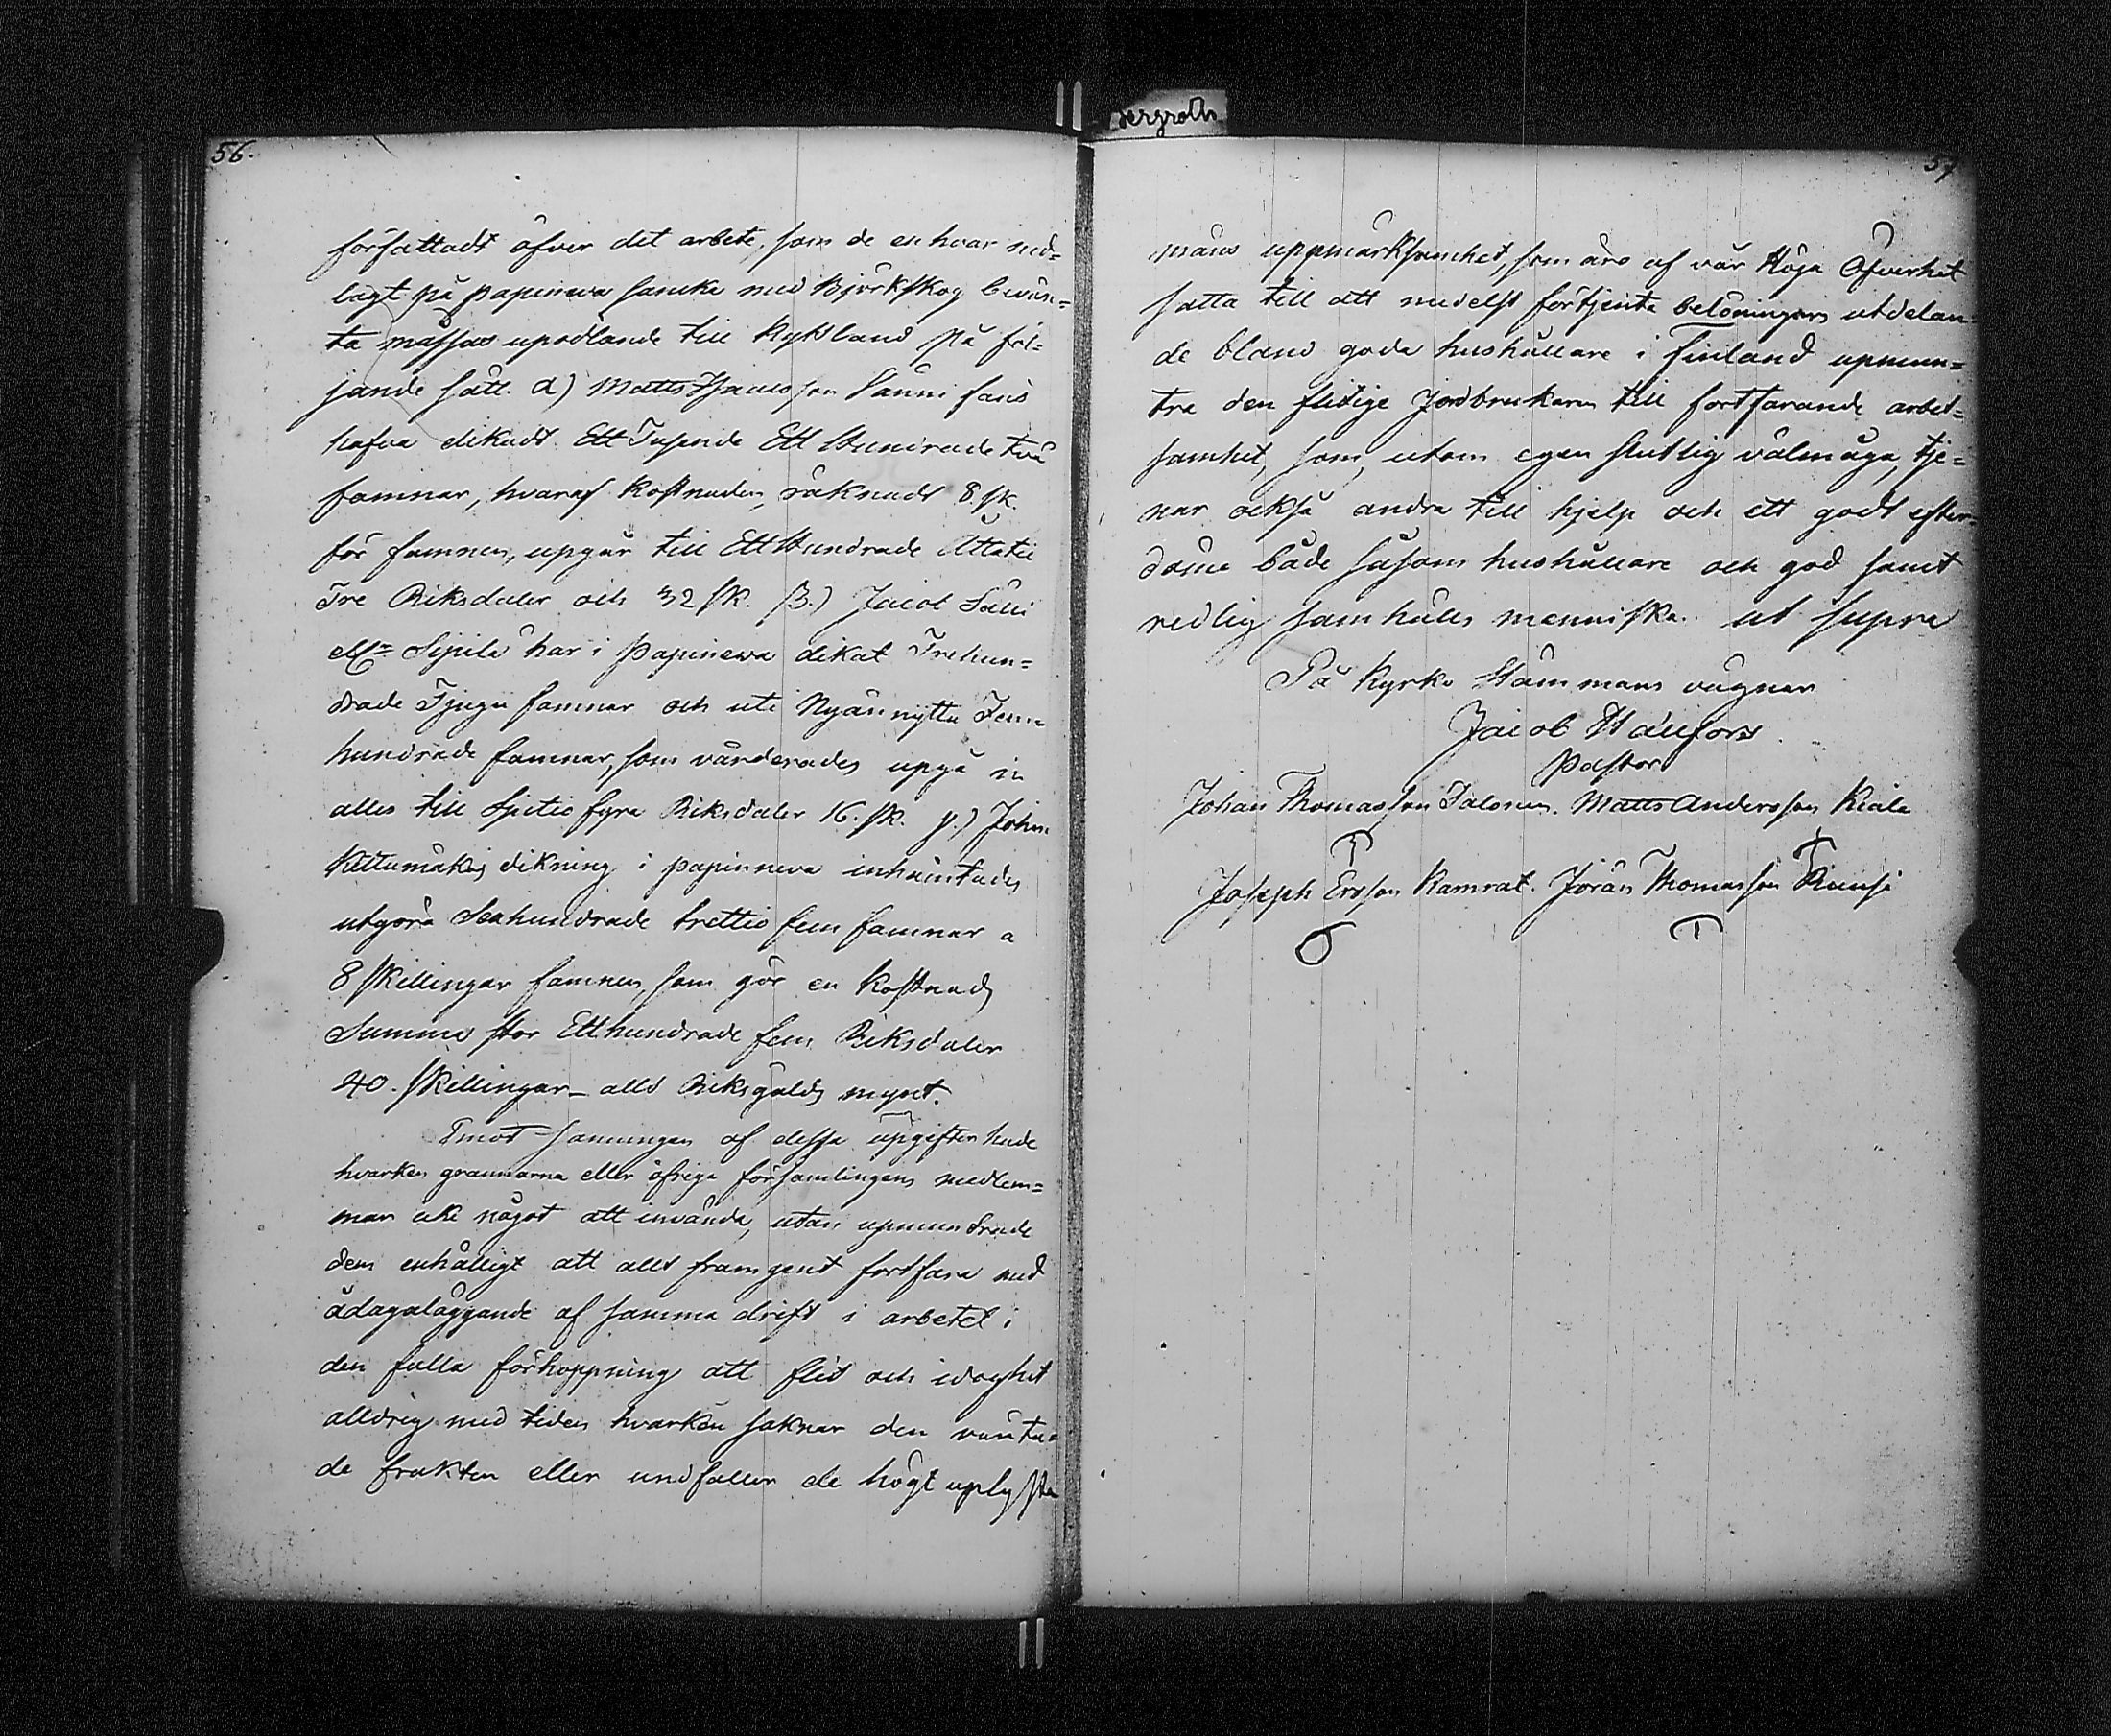 56.
författadt öfver det arbete, som de en hvar ned=
lagt på papineva sancka med Björkskog bevux=
ta måssas upodlande till Kyttland på föl=
jande sätt. α) Matts Isacsson Sauni fans
hafva dikadt Ett Tusende Ett Hundrade två
famnar, hvaraf kostnaden, räknadt 8 sk.
för famnen, upgår till Ett Hundrade Åttatio
Tre Riksdaler och 32 sk. β.) Jacob
Sipilä har i Papineva dikat Trehun=
drade Tjugu famnar och uti Fem=
hundrade famnar, som värderades upgå in
alles till fyra Riksdaler 16. sk. γ.) Johan
Kettumäkis dikning i papinneva inhämtades
utgöra Sexhundrade trettio fem famnar a
8 skillingar famnen, som gör en kostnads
Summa stor Etthundrade fem Riksdaler
40. skillingar _ allt Riksgälds mynt.
Emot sanningen af dessa upgifter hade
hvarken grannarna eller öfriga församlingens medlem=
mar icke något att invända, utan upmuntrade
dem enhälligt att allt framgent fortfara med
ådagaläggande af samma drift i arbetet i
den fulla förhoppning att flit och idoghet
alldrig med tiden hvarken saknar den vänta=
de frukten eller undfaller de högt uplysta
bergroth
57
mäns uppmärksamhet, som äro af vår Höga Öfverhet
satta till att medelst förtjenta belöningars utdelan=
de bland goda hushållare i Finland upmun=
tra den flitige Jordbrukaren till fortfarande arbet=
samhet, som, utom egen slutlig välmåga, tje=
nar också andra till hjelp och ett godt efter=
döme både såsom hushållare och god samt
redlig samhälls menniska. ut supra
På Kyrko Stämmans vägnar
Jacob Hällfors
Pastor
Johan Thomasson Salonen. Matts Andersson Kiala
Joseph Ersson Kamrat. Jöran Thomasson Ruusi